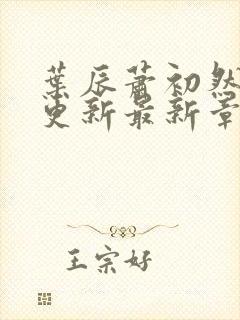 葉辰蕭初然
更新最新章
王宗好